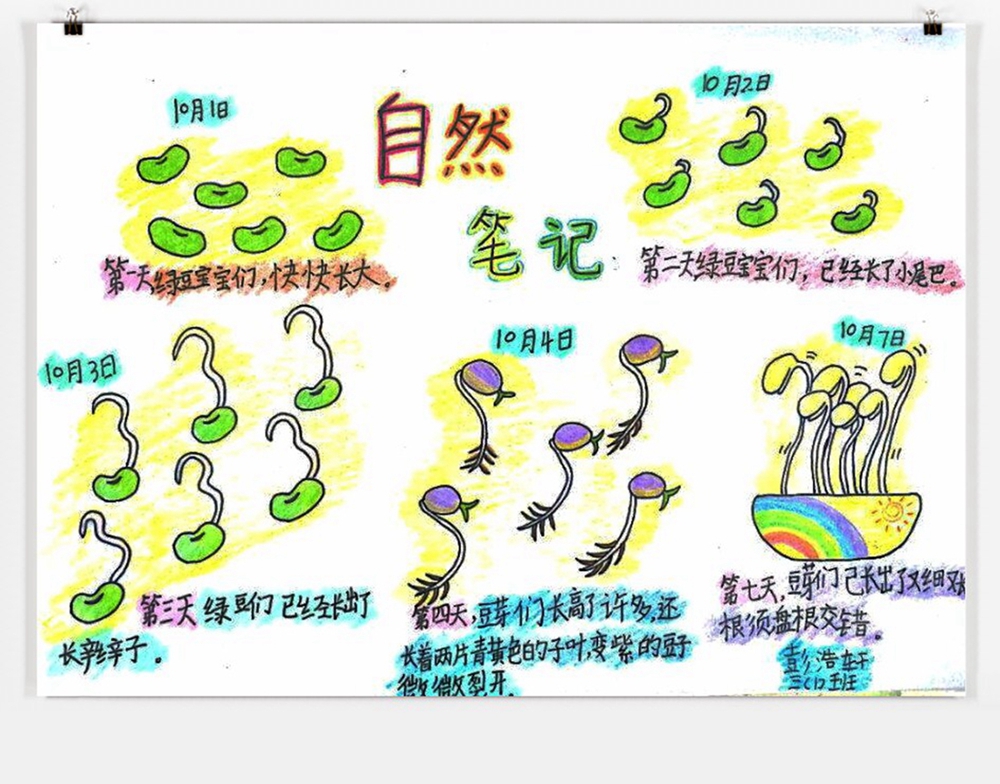 自然
笔记
10月1日
第一天,绿豆宝宝们,快快长大。
10月2日
第二天绿豆宝宝们，已经长了小尾巴。
10月3日
第三天绿豆们已经长出了
长辫子。
10月4日
第四天,豆芽们长高了许多,还
长着两片青黄色的子叶,变紫的豆子
微微裂开。
10月7日
第七天,豆芽们已长出了又细又
根须盘根交错。
彭浩轩
三(1)班